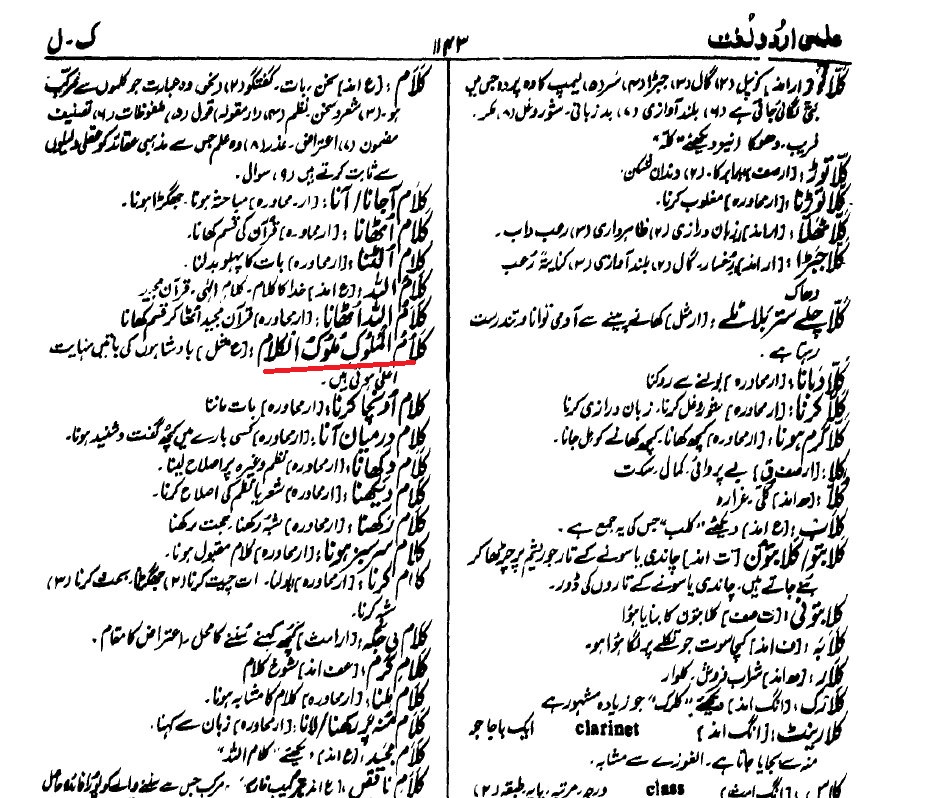 علمی اردو لغت
۱۱۴۳
ک-ل
کلّا: [ار۔امذ] کونپل (۲) گال (۳) جبڑا (۴) سر (۵) لیمپ کا وہ پرزہ جس میں
بتی لگائی جاتی ہے (۶) بلند آوازی (۷) بد زبانی۔ شور و غل (۸) مکر۔
فریب۔ دھوکا (نیز دیکھئے "کلّہ"
کلّا توڑ: [ار صف] (۲) دندان شکن
کلّا توڑنا: [ار محاورہ] مغلوب کرنا۔
[ار امذ] زبان درازی (۲) ظاہر داری (۳) رعب داب۔
کلّا جبڑا: [ار امذ] رخسار۔ گال (۲) بلند آوازی (۳) کنایۃً رعب
دھاک
کلّا چلے ستر بلا ٹلے: [ار مثل] کھانے پینے سے آدمی توانا و تندرست
رہتا ہے۔
کلّا دبانا: [ار محاورہ] بولنے سے روکنا
کلّا کرنا: [ار محاورہ] شور و غل کرنا۔ زبان درازی کرنا
کلّا گرم ہونا: [ار محاورہ] کچھ کھانا۔ کچھ کھانے کو مل جانا۔
کلا: [ار صف ق] بے پروائی۔ کمال۔ سکت
کلّا: [ھ امذ] کلی۔ غرارہ
کلاب: [ع امذ] دیکھئے "کلب" جس کی یہ جمع ہے۔
کلابتو/ کلابتون [ت امذ] چاندی یا سونے کے تار جو ریشم پر چڑھا کر
بٹے جاتے ہیں۔ چاندی یا سونے کے تاروں کی ڈور۔
کلابتونی: [ت صف] کلابتون کا بنایا ہوا
کلابہ: [ف امذ] کچا سوت جو تکلے پر لگا ہوا ہو
کلار: [ھ امذ] شراب فروش۔ کلوار
کلارک: [انگ امذ] دیکھئے "کلرک" جو زیادہ مشہور ہے
کلارینٹ: [انگ امذ] clarinet ایک باجا جو
منہ سے بجایا جاتا ہے۔ الغوزے سے مشابہ۔
کلاس: [انگ امث] class درجہ۔ مرتبہ۔ پایہ۔ طبقہ (۲)
کلام: [ع امذ] سخن۔ بات۔ گفتگو (۲) نحوی وہ عبارت جو کلموں سے مرکب
ہو۔ (۳) شعر و سخن۔ نظم (۴) مقولہ۔ قول (۵) ملفوظات (۶) تصنیف
مضمون (۷) اعتراض۔ عذر (۸) وہ علم جس سے مذہبی عقائد کو عقلی دلیلوں
سے ثابت کرتے ہیں (۹) سوال۔
کلام آ جانا/ آنا: [ار۔ محاورہ] مباحثہ ہونا۔ جھگڑا ہونا۔
کلام اٹھانا: [ار محاورہ] قرآن کی قسم کھانا۔
کلام الٹنا: [ار محاورہ] بات کا پہلو بدلنا۔
کلام اللہ: [ع امذ] خدا کا کلام۔ کلام الٰہی۔ قرآن مجید
کلام اللہ اٹھانا: [ار محاورہ] قرآن مجید اٹھا کر قسم کھانا
کلامُ الملوک ملوکُ الکلام: [ع مثل] بادشاہوں کی باتیں نہایت
اعلیٰ ہوتی ہیں۔
کلام اونچا کرنا: [ار محاورہ] بات ماننا
کلام درمیان آنا: [ار محاورہ] کسی بارے میں کچھ گفت و شنید ہونا۔
کلام دکھانا: [ار محاورہ] نظم وغیرہ پر اصلاح لینا۔
کلام دیکھنا: [ار محاورہ] شعر یا نظم کی اصلاح کرنا۔
کلام رکھنا: [ار محاورہ] شبہ رکھنا۔ حجت رکھنا
کلام سرسبز ہونا: [ار محاورہ] کلام مقبول ہونا۔
کلام کرنا: [ار محاورہ] بولنا۔ بات چیت کرنا (۲) جھگڑنا۔ بحث کرنا (۳)
شبہ کرنا۔
کلام کی جگہ: [ار امث] کچھ کہنے سننے کا محل۔ اعتراض کا مقام۔
کلام گرم: [صف امذ] شوخ کلام
کلام ملنا: [ار محاورہ] کلام کا مشابہ ہونا۔
کلام منہ پر رکھنا/ لانا: [ار محاورہ] زبان سے کہنا۔
کلام مجید: [ع امذ] دیکھئے "کلام اللہ"
کلام ناقص: [ع امذ] مرکب جس سے سننے والے کو پورا فائدہ حاصل